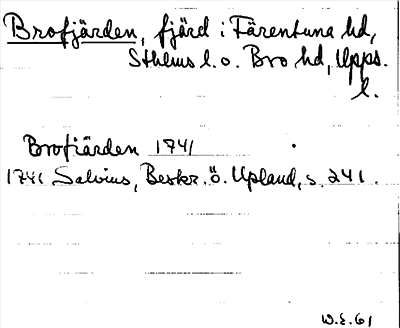 Brofjärden, fjärd i Färentuna hd,
Sthlms l. o. Bro hd, Upps.
l.
Brofiärden 1741
1741 Salvius, Beskr. ö. Upland, s. 241.
W.E.61